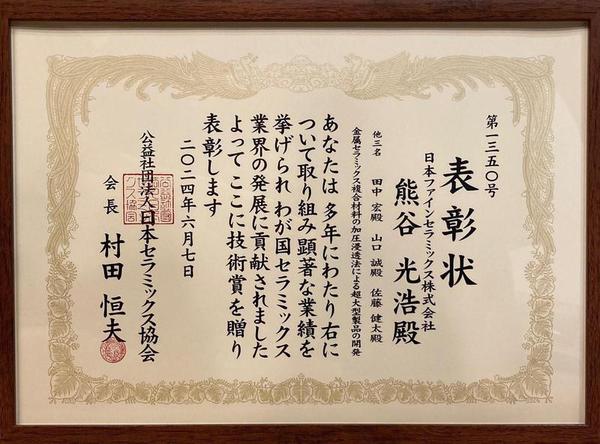 第一三五〇号
表彰状
日本ファインセラミックス株式会社
熊谷 光浩殿
他三名 田中 宏殿 山口 誠殿 佐藤 健太殿
金属セラミックス複合材料の加圧浸透法による超大型製品の開発
あなたは 多年にわたり 右に
ついて取り組み 顕著な業績を
挙げられ わが国セラミックス
業界の発展に貢献されました
よって ここに技術賞を贈り
表彰します
二〇二四年六月七日
公益社団法人日本セラミックス協会
会長 村田 恒夫